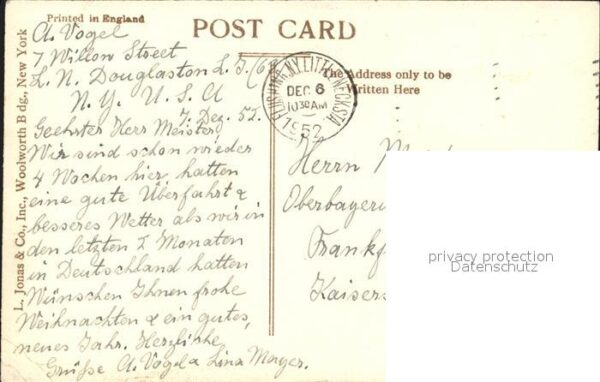 Printed in England
POST CARD
L. Jonas & Co., Inc., Woolworth Bdg., New York
A. Vogel
7, Willon Street
L. N. Douglaston L. I. (6
N. Y. U. S. A
7. Dez. 52.
Geehrter Herr Meister
Wir sind schon wieder
4 Wochen hier, hatten
eine gute Überfahrt &
besseres Wetter als wir in
den letzten 2 Monaten
in Deutschland hatten
Wünschen Ihnen frohe
Weihnachten & ein gutes,
neues Jahr. Herzliche
Grüße A. Vogel & Lina Mayer.
FLUSHING, N.Y. LITTLE NECK STA.
DEC 6
10 30 AM
1952
The Address only to be
Written Here
Herrn M
Oberbayeri
Frankf
Kaisers
privacy protection
Datenschutz